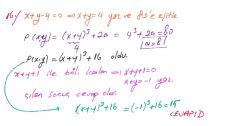 16/ x+y-4=0 ⇒ x+y=4 yaz ve 80'e eşitle
P(x,y) = (x+y)³+2a = 4³+2a=80
4
a=8
P(x,y) = (x+y)³+16 oldu.
x+y+1 ile böl. kalan ⇒ x+y+1=0
x+y=-1 yaz
çıkan sonuç cevap olur.
(x+y)³+16 = (-1)³+16=15
CEVAP D